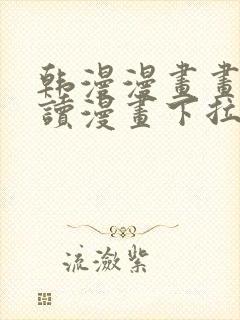 韩漫漫畫畫
讀漫畫下拉
流瀲紫